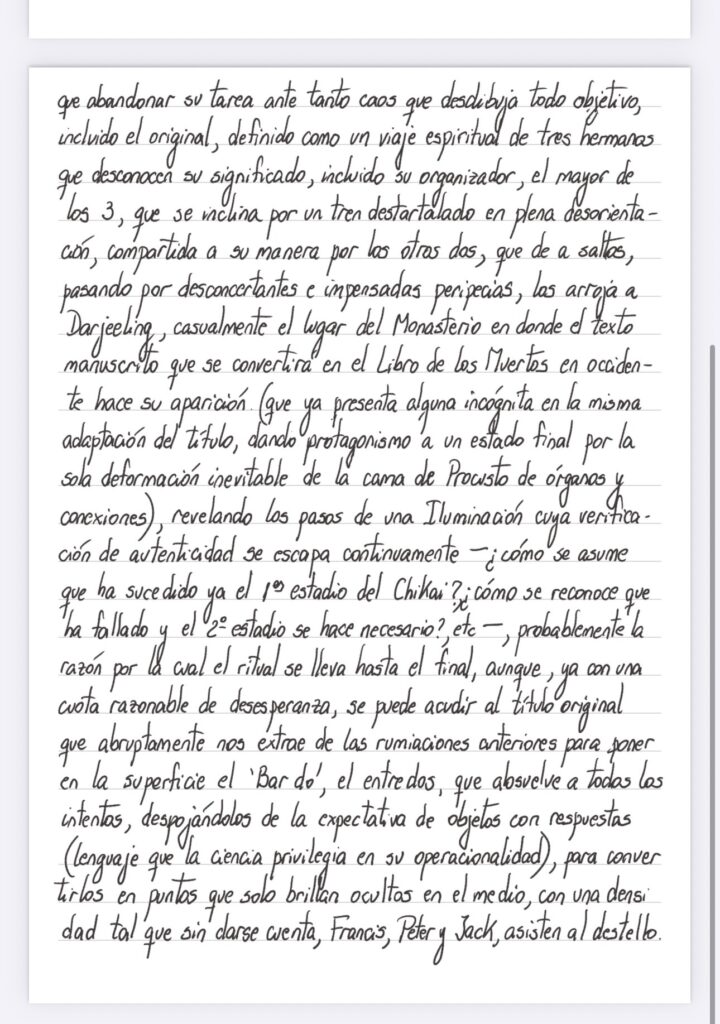 que abandonar su tarea ante tanto caos que desdibuja todo objetivo,
incluido el original, definido como un viaje espiritual de tres hermanos
que desconocen su significado, incluido su organizador, el mayor de
los 3, que se inclina por un tren destartalado en plena desorienta-
ción, compartida a su manera por los otros dos, que de a saltos,
pasando por desconcertantes e impensadas peripecias, los arroja a
Darjeeling, casualmente el lugar del Monasterio en donde el texto
manuscrito que se convertirá en el Libro de los Muertos en occiden-
te hace su aparición (que ya presenta alguna incógnita en la misma
adaptación del título, dando protagonismo a un estado final por la
sola deformación inevitable de la cama de Procusto de órganos y
conexiones), revelando los pasos de una Iluminación cuya verifica-
ción de autenticidad se escapa continuamente —¿cómo se asume
que ha sucedido ya el 1er estadio del Chikai?, ¿cómo se reconoce que
ha fallado y el 2º estadio se hace necesario?, etc —, probablemente la
razón por la cual el ritual se lleva hasta el final, aunque, ya con una
cuota razonable de desesperanza, se puede acudir al título original
que abruptamente nos extrae de las rumiaciones anteriores para poner
en la superficie el 'Bar do', el entredos, que absuelve a todos los
intentos, despojándolos de la expectativa de objetos con respuestas
(lenguaje que la ciencia privilegia en su operacionalidad), para conver
tirlos en puntos que solo brillan ocultos en el medio, con una densi
dad tal que sin darse cuenta, Francis, Peter y Jack, asisten al destello.